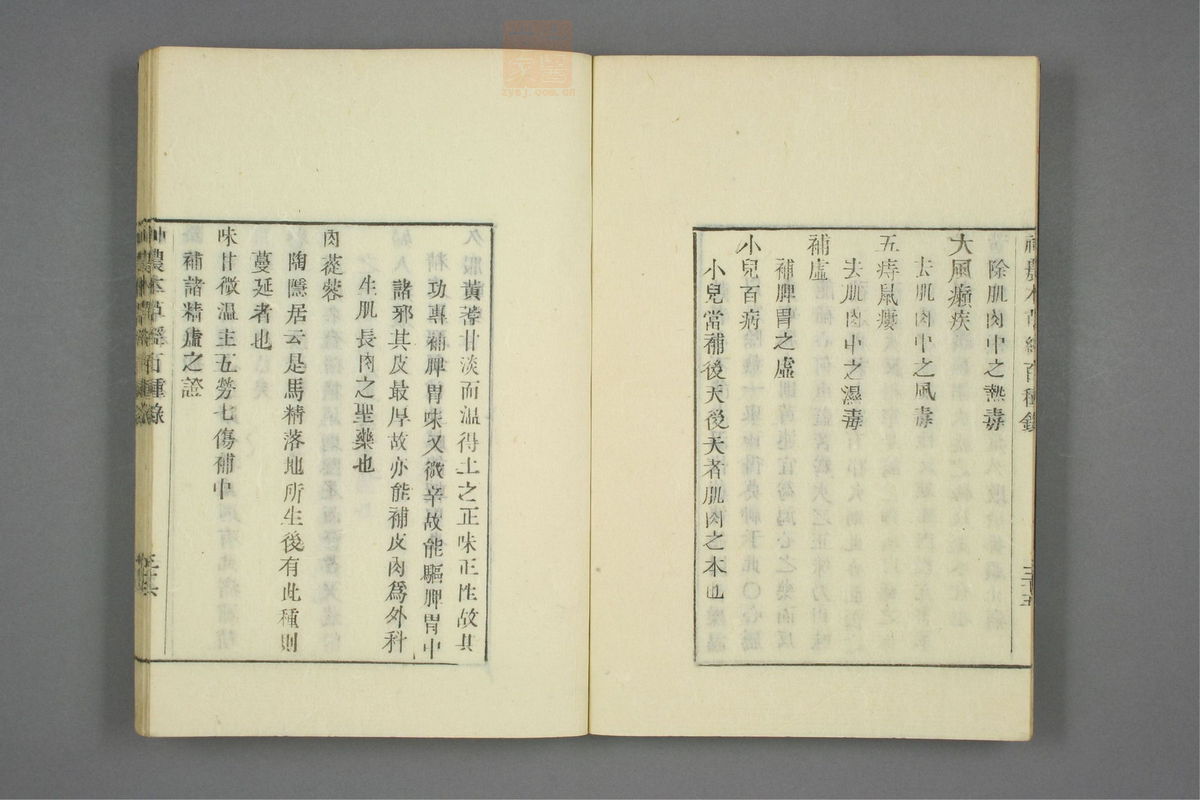 神農本草經百種錄
三十五
除肌肉中之熱毒
大風癩疾
去肌肉中之風毒
五痔鼠瘻
去肌肉中之濕毒
補虛
補脾胃之虛
小兒百病
小兒當補後天後天者肌肉之本也
黃耆甘淡而溫得土之正味正性故其
功專補脾胃味又微辛故能驅脾胃中
諸邪其皮最厚故亦能補皮肉爲外科
生肌長肉之聖藥也
肉蓯蓉
陶隱居云是馬精落地所生後有此種則
蔓延者也
味甘微溫主五勞七傷補中
補諸精虛之證
神農本草經百種錄
三十六
zysj.com.cn